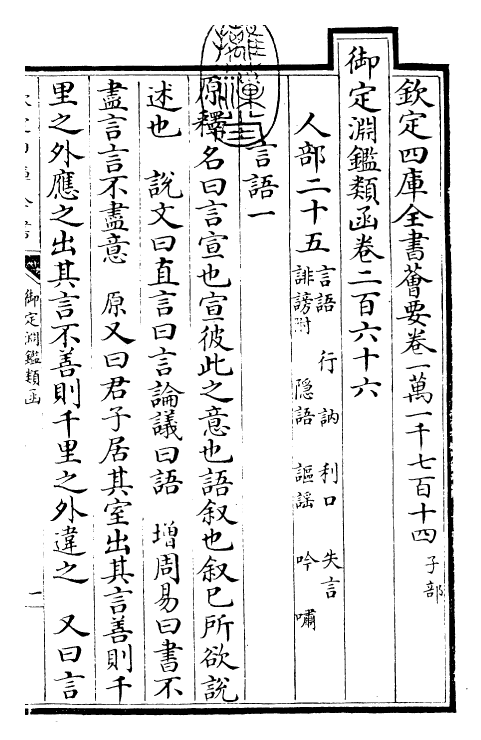 欽定四庫全書薈要卷一萬一千七百十四 子部
御定淵鑑類函卷二百六十六
人部二十五 言語 行 訥 利口 失言
誹謗附 隠語 謳謡 吟 嘯
言語一
原釋名曰言宣也宣彼此之意也語叙也叙已所欲說
述也 說文曰直言曰言論議曰語 增周易曰書不
盡言言不盡意 原又曰君子居其室出其言善則千
里之外應之出其言不善則千里之外違之 又曰言
御定淵鑑類函
一